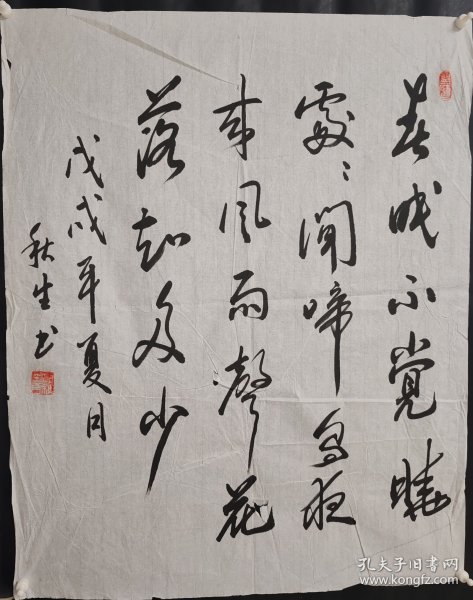 春眠不覺曉
處々聞啼鳥夜
来風雨聲花
落知多少
戊戌年夏月
秋生书
孔夫子旧书网
www.kongfz.com